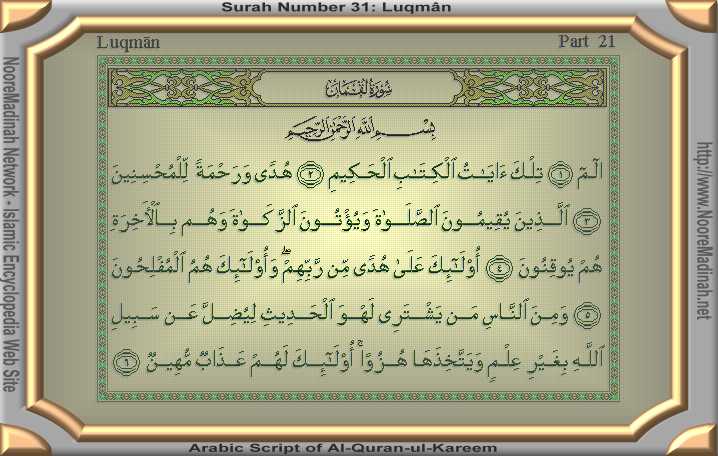 Surah Number 31: Luqmân
Luqmān
Part 21
سُورَةُ لُقْمَانَ
بِسْمِ ٱللَّهِ ٱلرَّحْمَٰنِ ٱلرَّحِيمِ
الٓمٓ ١ تِلْكَ ءَايَٰتُ ٱلْكِتَٰبِ ٱلْحَكِيمِ ٢ هُدًى وَرَحْمَةً لِّلْمُحْسِنِينَ
٣ ٱلَّذِينَ يُقِيمُونَ ٱلصَّلَوٰةَ وَيُؤْتُونَ ٱلزَّكَوٰةَ وَهُم بِٱلْأَخِرَةِ
هُمْ يُوقِنُونَ ٤ أُوْلَٰٓئِكَ عَلَىٰ هُدًى مِّن رَّبِّهِمْ ۖ وَأُوْلَٰٓئِكَ هُمُ ٱلْمُفْلِحُونَ
٥ وَمِنَ ٱلنَّاسِ مَن يَشْتَرِى لَهْوَ ٱلْحَدِيثِ لِيُضِلَّ عَن سَبِيلِ
ٱللَّهِ بِغَيْرِ عِلْمٍ وَيَتَّخِذَهَا هُزُوًا ۚ أُوْلَٰٓئِكَ لَهُمْ عَذَابٌ مُّهِينٌ ٦
Arabic Script of Al-Quran-ul-Kareem
NooreMadinah Network - Islamic Encyclopedia Web Site
http://www.NooreMadinah.net